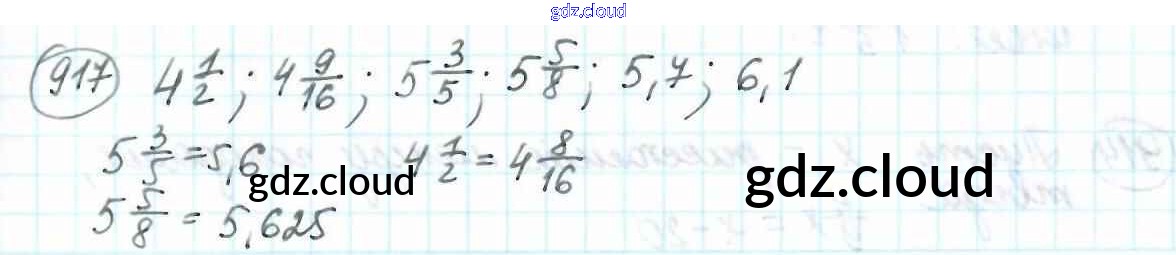 gdz.cloud
917 4 1/2; 4 9/16; 5 3/5; 5 5/8; 5,7; 6,1
5 3/5 = 5,6 4 1/2 = 4 8/16
gdz.cloud gdz.cloud
5 5/8 = 5,625